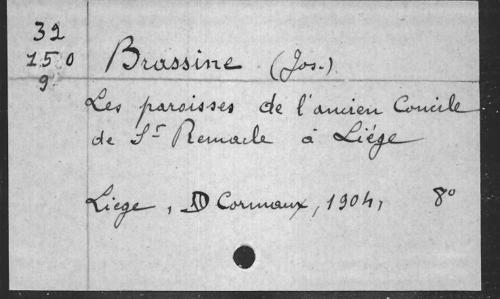 32
150
9
Brassine (Jos.)
Les paroisses de l'ancien Concile
de St Remacle à Liége
Liége, D Cormaux, 1904, 8°